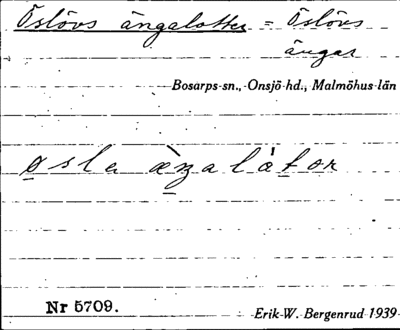 Öslövs ängalotter = Öslövs
ängar
Bosarps sn., Onsjö hd., Malmöhus län
øsla æ̀ŋalåtor
Nr 5709.
Erik W. Bergenrud 1939